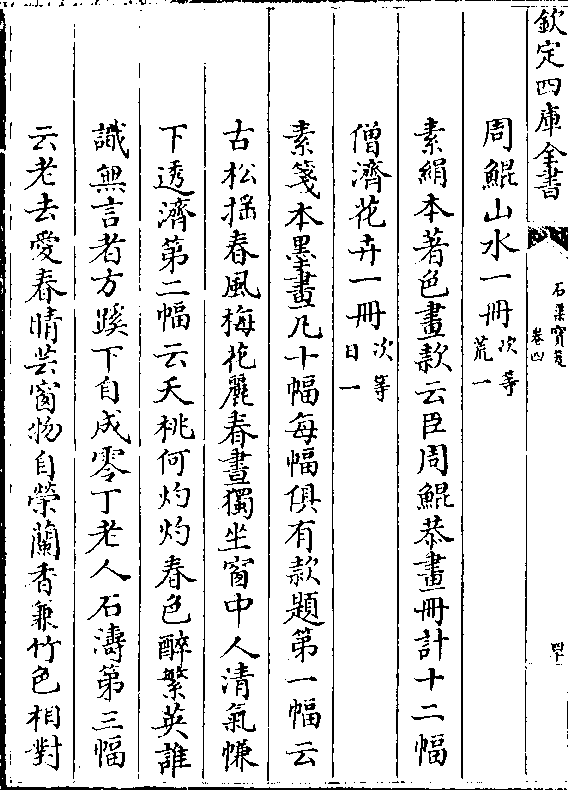 欽定四庫全書
石渠寶笈
卷四
四十二
周鯤山水一冊次等
荒一
素絹本著色畫款云臣周鯤恭畫一冊計十二幅
僧濟花卉一冊次等
日一
素箋本墨畫凡十幅每幅俱有款題第一幅云
古松揺春風梅花麗春晝獨坐窗中人清氣慊
下透濟第二幅云夭桃何灼灼春色醉繁英誰
識無言者方蹊下自成零丁老人石濤第三幅
云老去愛春晴芸窗物自榮蘭香兼竹色相對